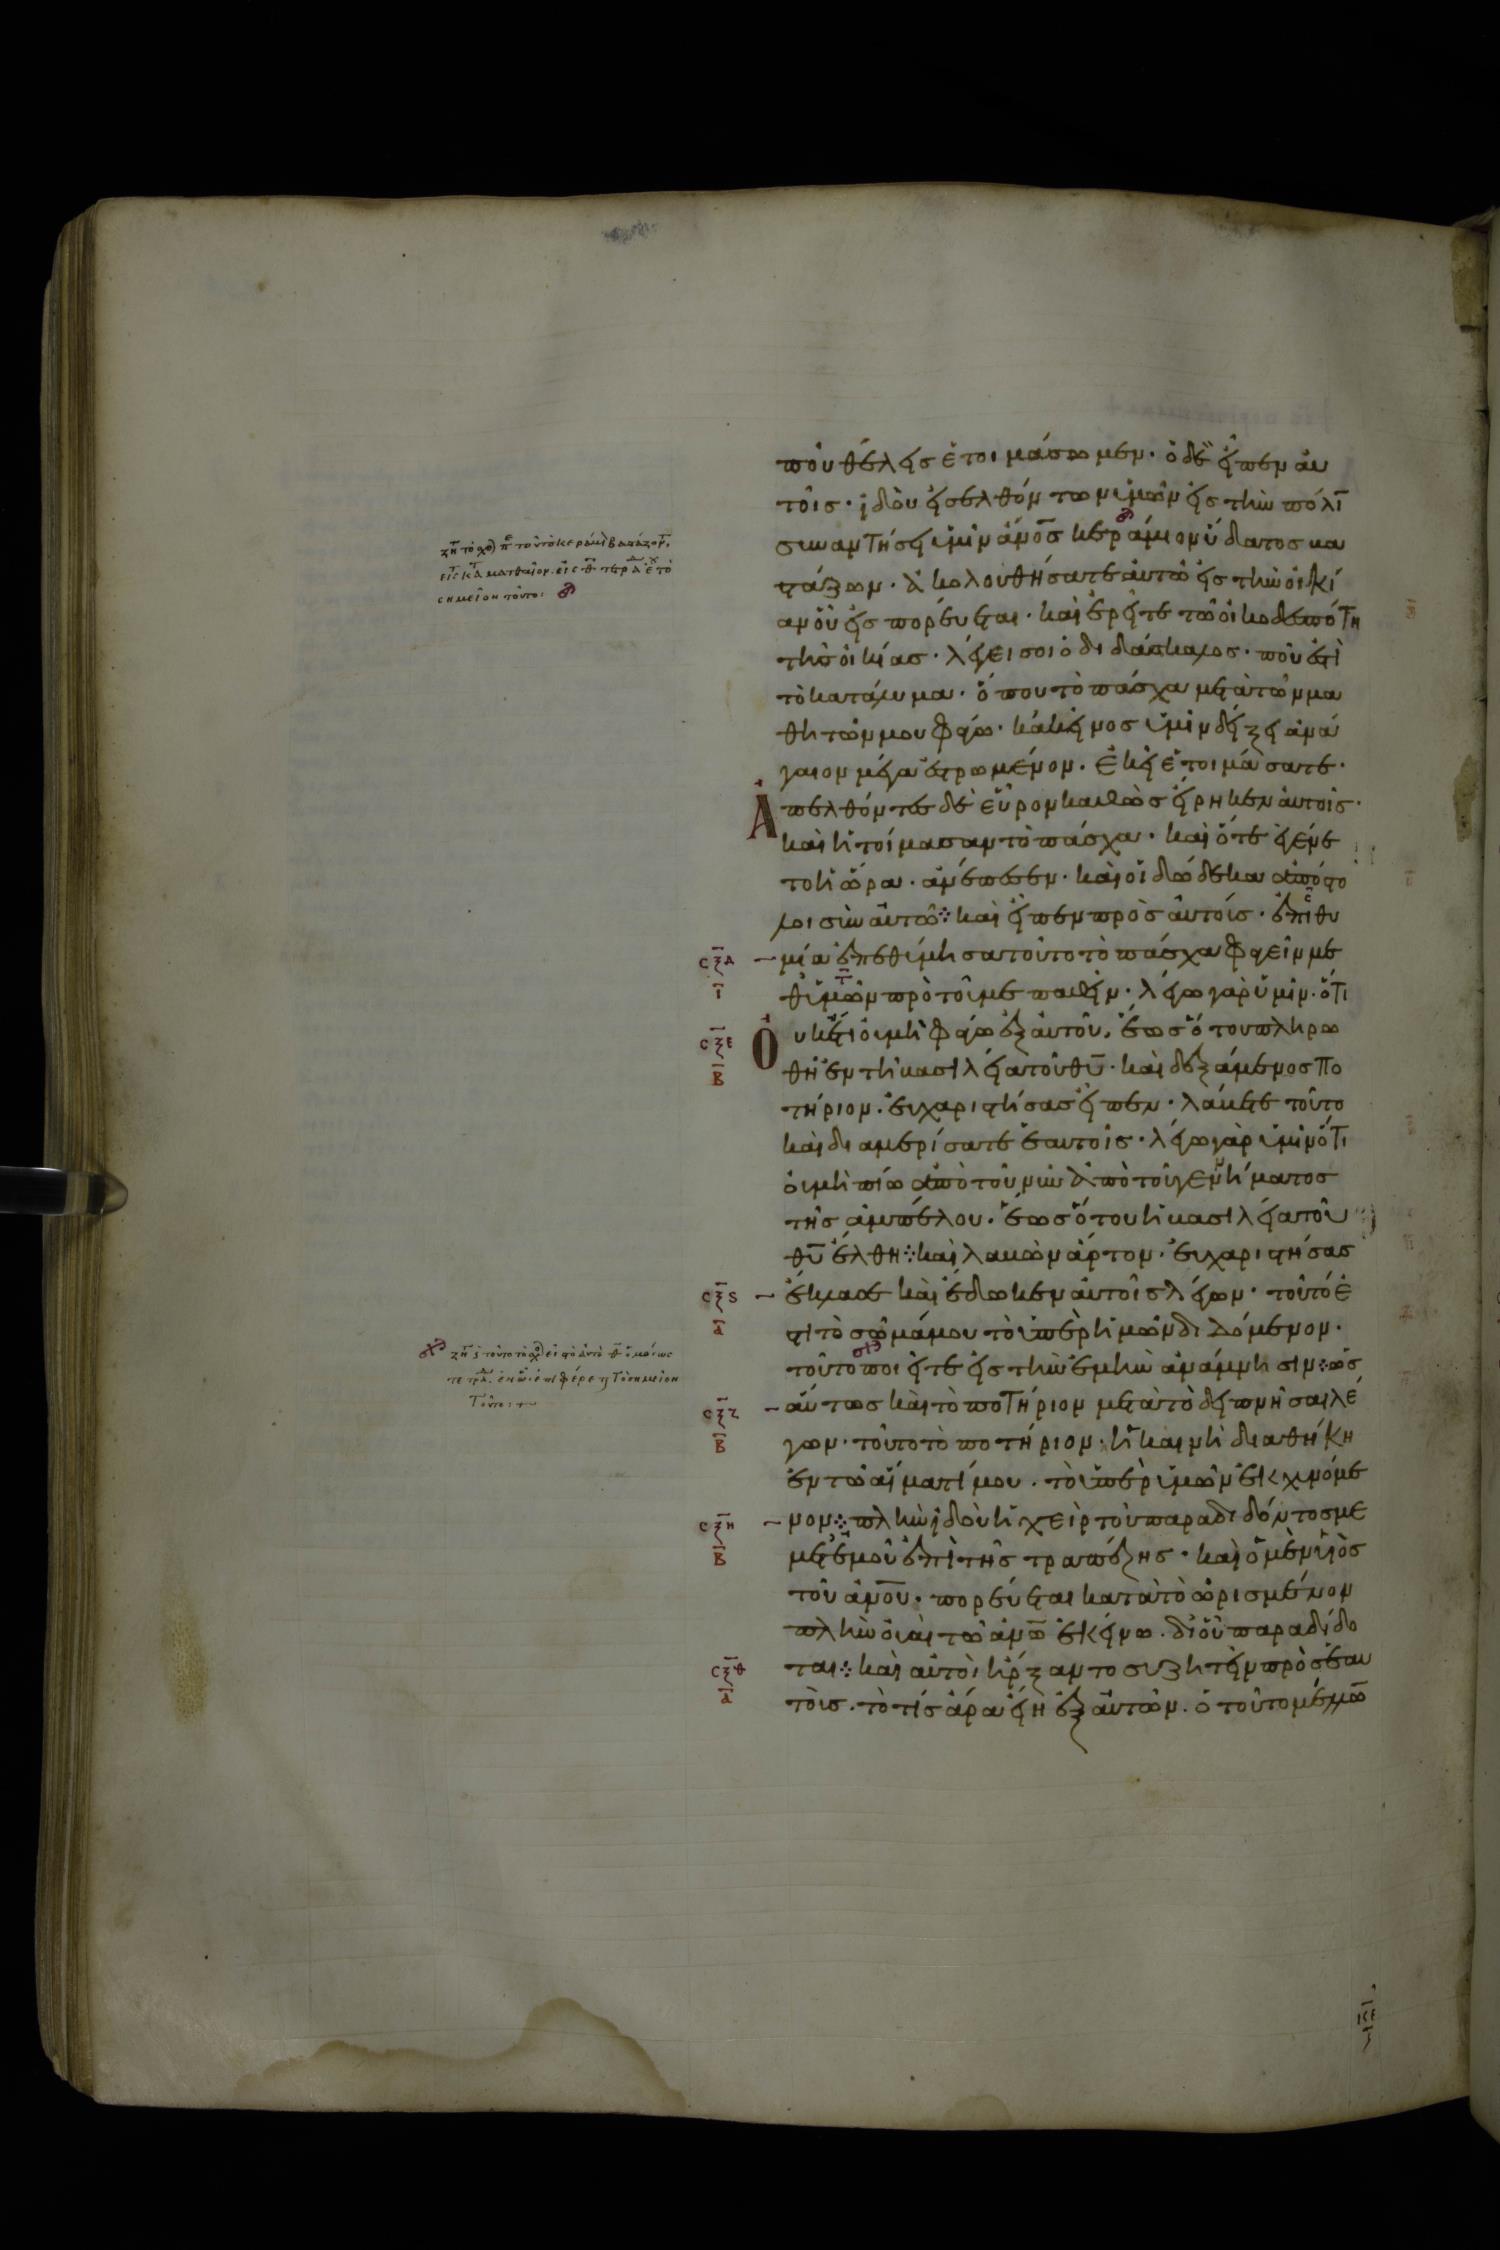 ποῦ θέλεις ἑτοιμάσωμεν· ὁ δὲ εἶπεν αὐ
τοῖς· ἰδοὺ εἰσελθόντων ὑμῶν εἰς τὴν πόλῑ
συναντήσει ὑμῖν ἄνο̅σ̅ κεράμιον ὕδατος βα
στάζων· ἀκολουθήσατε αὐτῶ εἰς τὴν οἰκί
αν οὗ εἰσπορεύεται· καὶ ἐρεῖτε τῶ οἰκοδεσπότη
τῆς οἰκίας· λέγει σοι ὁ διδάσκαλος· ποῦ ἐστὶ
τὸ κατάλυμα· ὅπου τὸ πάσχα μετὰ τῶν μα
θητῶν μου φάγω· κἀκεῖνος ὑμῖν δείξει ἀνά
γαιον μέγα ἐστρωμένον· ἐκεῖ ἑτοιμάσατε·
Ἀπελθόντες δὲ εὗρον καθὼς εἴρηκεν αὐτοῖς·
καὶ ἡτοίμασαν τὸ πάσχα· καὶ ὅτε ἐγένε
το ἡ ὥρα· ἀνέπεσεν· καὶ οἱ δώδεκα ἀπόστο
λοι σὺν αὐτῶ⁘ καὶ εἶπεν πρὸς αὐτούς· ἐπιθυ
cξδ
ι
μία ἐπεθύμησα τοῦτο τὸ πάσχα φαγεῖν με
θ' ὑμῶν πρὸ τοῦ με παθεῖν· λέγω γὰρ ὑμῖν· ὅτι
cξε
β
Οὐκέτι οὐ μὴ φάγω ἐξ αὐτοῦ, ἕως ὅτου πληρω
θῆ ἐν τῆ βασιλεία τοῦ θυ̅· καὶ δεξάμενος πο
τήριον· εὐχαριστήσας εἶπεν· λάβετε τοῦτο
καὶ διαμερίσατε ἑαυτοῖς· λέγω γὰρ ὑμῖν ὅτι
οὐ μὴ πίω ἀπὸ τοῦ νῦν ἀπὸ τοῦ γεννήματος
τῆς ἀμπέλου· ἕως ὅτου ἡ βασιλεία τοῦ
θυ̅ ἔλθη⁘ καὶ λαβὼν ἄρτον· εὐχαριστήσας
cξϛ
α
ἔκλασε καὶ ἔδωκεν αὐτοῖς λέγων· τοῦτό ἐ
στι τὸ σῶμά μου τὸ ὑπὲρ ἡμῶν διδόμενον·
τοῦτο ποιεῖτε εἰς τὴν ἐμὴν ἀνάμνησιν⁘ ὡσ
cξζ
β
αύτως καὶ τὸ ποτήριον μετὰ τὸ δειπνῆσαι λέ
γων· τοῦτο τὸ ποτήριον· ἡ καινὴ διαθήκη
ἐν τῶ αἵματί μου· τὸ ὑπὲρ ὑμῶν ἐκχυνόμε
cξη
β
νον⁘ πλὴν ἰδοὺ ἡ χεὶρ τοῦ παραδιδόντος με
μετ' ἐμοῦ ἐπὶ τῆς τραπέζης· καὶ ὁ μὲν υἱὸς
τοῦ ἀνο̅υ̅· πορεύεται κατὰ τὸ ὡρισμένον
πλὴν οὐαὶ τῶ ἀνω̅ ἐκείνω· δι' οὗ παραδίδο
cξθ
α
ται⁘ καὶ αὐτοὶ ἤρξαντο συζητεῖν πρὸς ἑαυ
τοῖς· τὸ τίς ἄρα εἴη ἐξ αὐτῶν· ὁ τοῦτο μέλλω̅